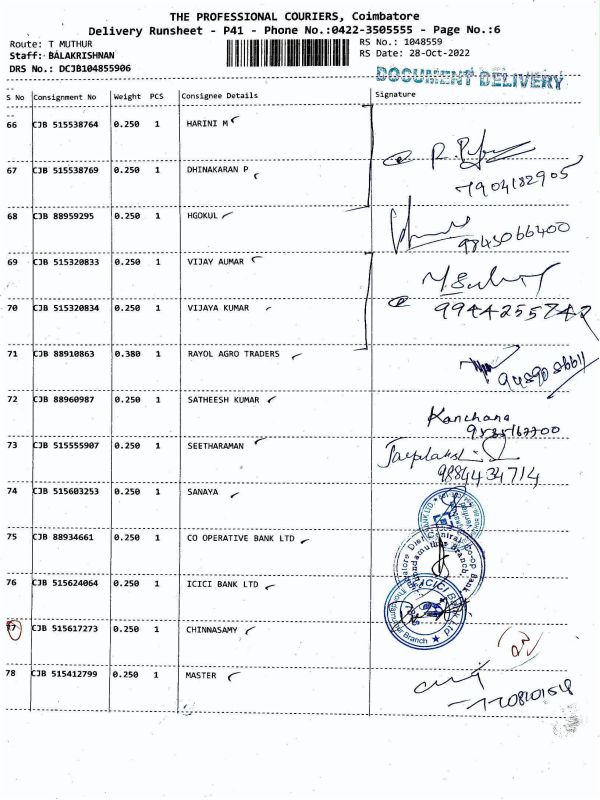 THE PROFESSIONAL COURIERS, Coimbatore
Delivery Runsheet - P41 - Phone No.:0422-3505555 - Page No.:6
Route: T MUTHUR
RS No.: 1048559
Staff: BALAKRISHNAN
RS Date: 28-Oct-2022
DRS No.: DCJB104855906
DOCUMENT DELIVERY
S No Consignment No Weight PCS Consignee Details Signature
66 CJB 515538764 0.250 1 HARINI M
67 CJB 515538769 0.250 1 DHINAKARAN P
7904182905
68 CJB 88959295 0.250 1 HGOKUL
9843066400
69 CJB 515320833 0.250 1 VIJAY AUMAR
70 CJB 515320834 0.250 1 VIJAYA KUMAR
9944255742
71 CJB 88910863 0.380 1 RAYOL AGRO TRADERS
72 CJB 88960987 0.250 1 SATHEESH KUMAR
Kanchana
73 CJB 515555907 0.250 1 SEETHARAMAN
9884434714
74 CJB 515603253 0.250 1 SANAYA
75 CJB 88934661 0.250 1 CO OPERATIVE BANK LTD
76 CJB 515624064 0.250 1 ICICI BANK LTD
ICICI Bank Ltd
77 CJB 515617273 0.250 1 CHINNASAMY
78 CJB 515412799 0.250 1 MASTER